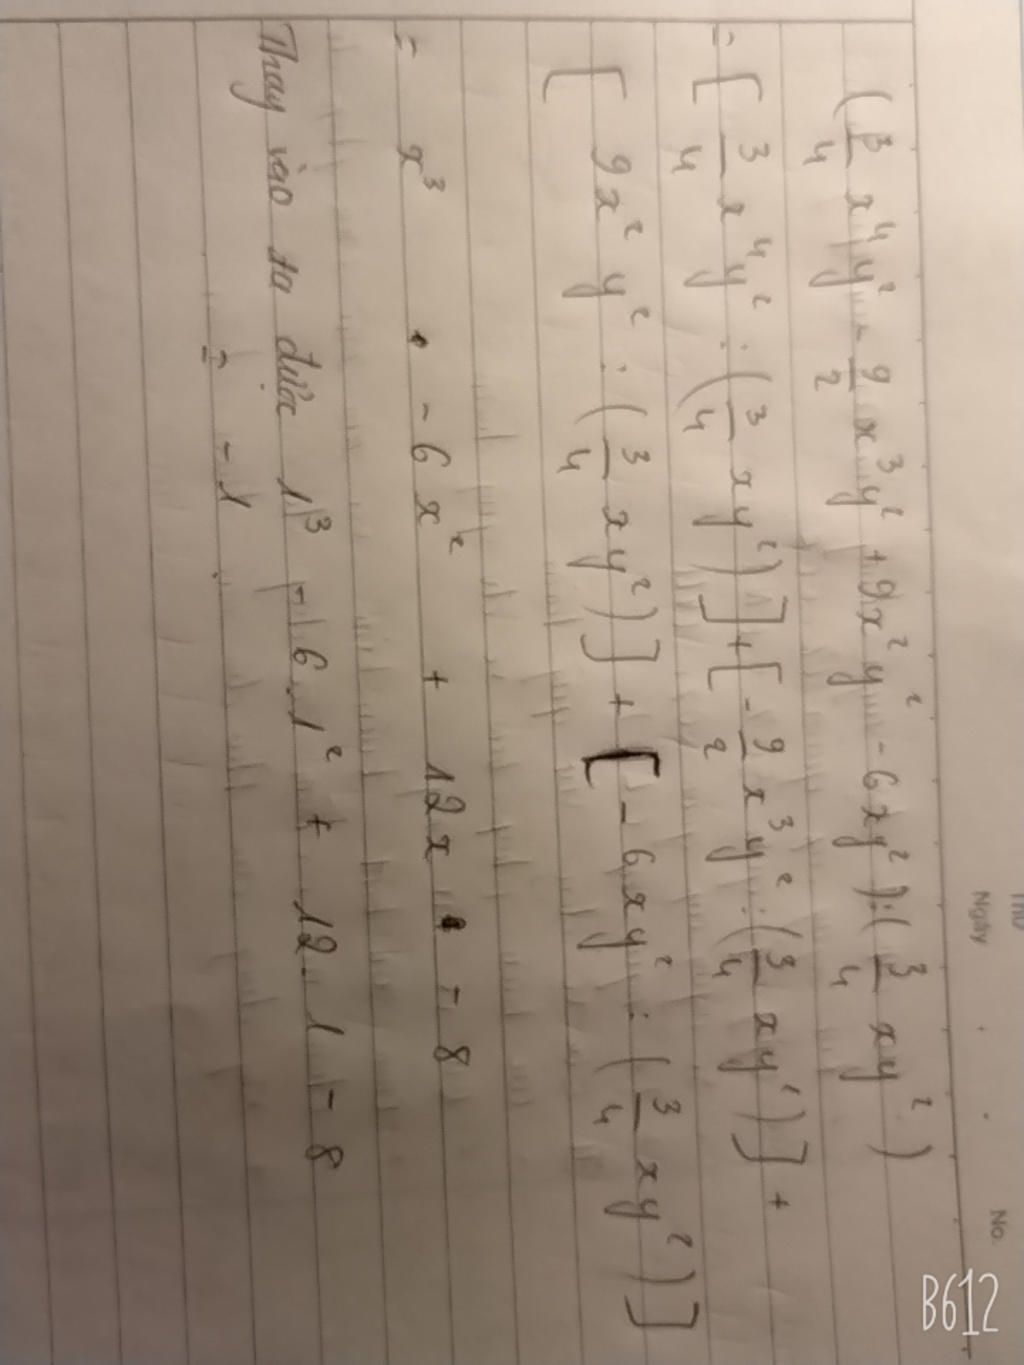 Thứ
Ngày
No.
(3/4 x⁴y² - 9/2 x³y² + 9x²y² - 6xy²) : (3/4 xy²)
= [3/4 x⁴y² : (3/4 xy²)] + [- 9/2 x³y² : (3/4 xy²)] +
[9x²y² : (3/4 xy²)] + [- 6xy² : (3/4 xy²)]
= x³ - 6x² + 12x - 8
Thay vào ta được 1³ - 6.1² + 12.1 - 8
= -1
B612